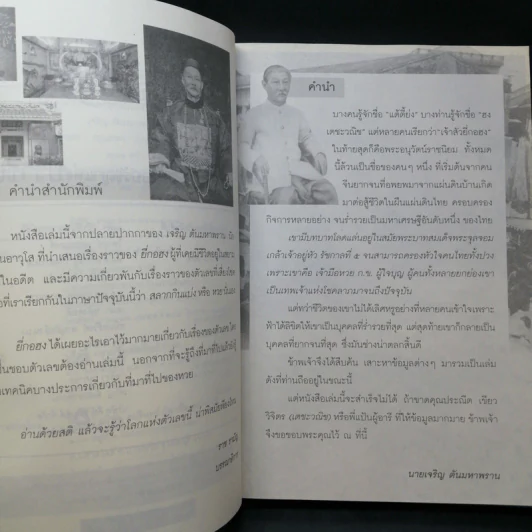 คำนำสำนักพิมพ์
หนังสือเล่มนี้จากปลายปากกาของ เจริญ ตันมหาพราน
ที่นำเสนอเรื่องราวของ ยี่กอฮง ผู้ที่เคยมีชีวิตอยู่ใน
ในอดีต และมีความเกี่ยวพันกับเรื่องราวของตัวเลขที่
ที่เราเรียกกันในภาษาปัจจุบันนี้ว่า สลากกินแบ่ง หรือ
ยี่กอฮง ได้เผยอะไรเอาไว้มากมายเกี่ยวกับเรื่องของตัวเลข
ชื่นชอบตัวเลขต้องอ่านเล่มนี้ นอกจากที่จะรู้ถึงที่มาที่ไป
เทคนิคบางประการเกี่ยวกับที่มาที่ไปของหวย
อ่านด้วยสติ แล้วจะรู้ว่าโลกแห่งตัวเลขนี้
คำนำ
บางคนรู้จักชื่อ "แต้ตี้ย่ง" บางท่านรู้จักชื่อ "ฮง
เตชะวณิช" แต่หลายคนเรียกว่า "เจ้าสัวยี่กอฮง"
ในท้ายสุดก็คือพระอนุวัตน์ราชนิยม ทั้งหมด
นี้ล้วนเป็นชื่อของคนๆ หนึ่ง ที่เริ่มต้นจากคน
จีนยากจนที่อพยพมาจากแผ่นดินบ้านเกิด
มาต่อสู้ชีวิตในผืนแผ่นดินไทย ครอบครอง
กิจการหลายอย่าง จนร่ำรวยเป็นมหาเศรษฐีอันดับหนึ่ง ของไทย
เขามีบทบาทโลดแล่นอยู่ในสมัยพระบาทสมเด็จพระจุลจอม
เกล้าเจ้าอยู่หัว รัชกาลที่ ๕ จนสามารถครองหัวใจคนไทยทั้งปวง
เพราะเขาคือ เจ้ามือหวย ก.ข. ผู้ใจบุญ ผู้คนทั้งหลายยกย่องเขา
เป็นเทพเจ้าแห่งโชคลาภมาจนถึงปัจจุบัน
แต่ทว่าชีวิตของเขาไม่ได้เลิศหรูอย่างที่หลายคนเข้าใจเพราะ
ฟ้าได้ลิขิตให้เขาเป็นบุคคลที่ร่ำรวยที่สุด แต่สุดท้ายเขาก็กลายเป็น
บุคคลที่ยากจนที่สุด ซึ่งมันช่างน่าตลกสิ้นดี
ข้าพเจ้าจึงได้สืบค้น เสาะหาข้อมูลต่างๆ มารวมเป็นเล่ม
ดังที่ท่านถืออยู่ในขณะนี้
แต่หนังสือเล่มนี้จะสำเร็จไม่ได้ ถ้าขาดคุณประณีต เขียว
วิจิตร (เตชะวณิช) หรือพี่แป๋นผู้อารี ที่ให้ข้อมูลมากมาย ข้าพเจ้า
จึงขอขอบพระคุณไว้ ณ ที่นี้
นายเจริญ ตันมหาพราน